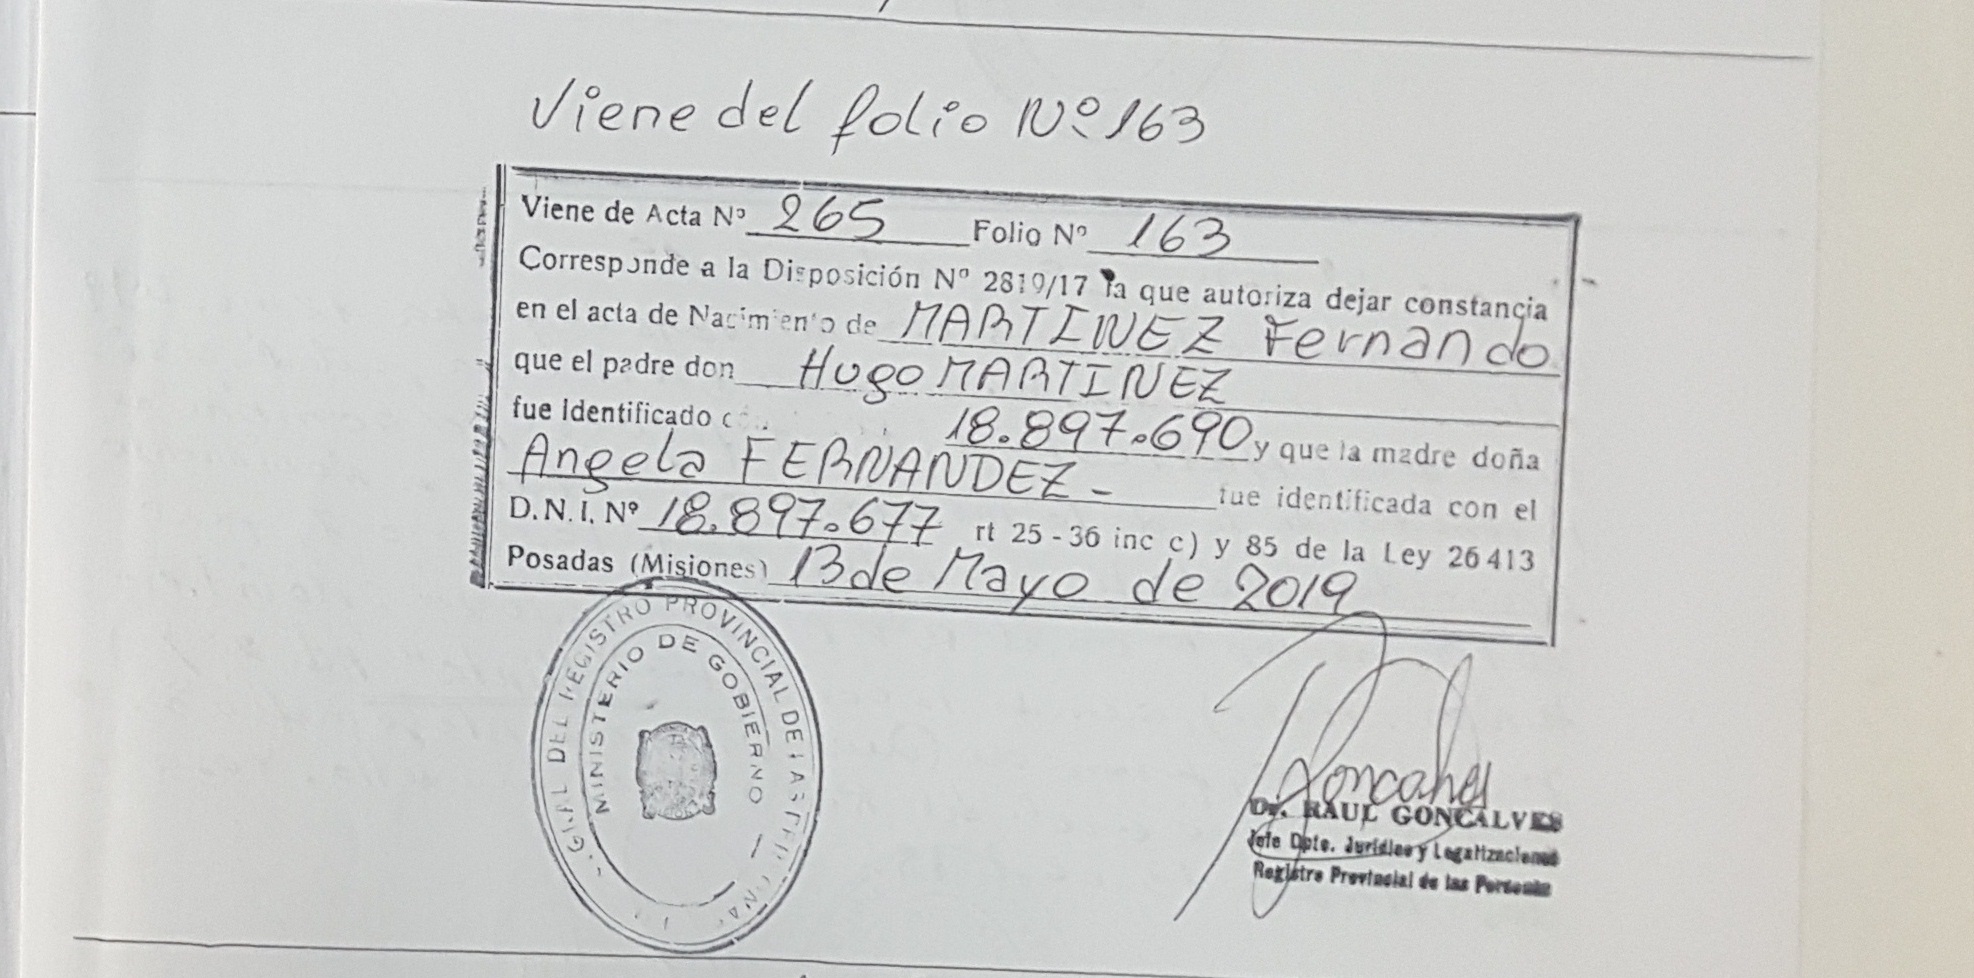 Viene del folio Nº 163
Viene de Acta Nº 265 Folio Nº 163
Corresponde a la Disposición Nº 2819/17 la que autoriza dejar constancia
en el acta de Nacimiento de MARTINEZ Fernando
que el padre don Hugo MARTINEZ
fue identificado 18.897.690 y que la madre doña
Angela FERNANDEZ -
fue identificada con el
D.N.I. Nº 18.897.677 rt 25 - 36 inc c) y 85 de la Ley 26413
Posadas (Misiones) 13 de Mayo de 2019
GRAL DEL REGISTRO PROVINCIAL DE LAS
MINISTERIO DE GOBIERNO
Goncalves
Dr. RAUL GONCALVES
Jefe Dpto. Jurídico y Legalizaciones
Registro Provincial de las Personas